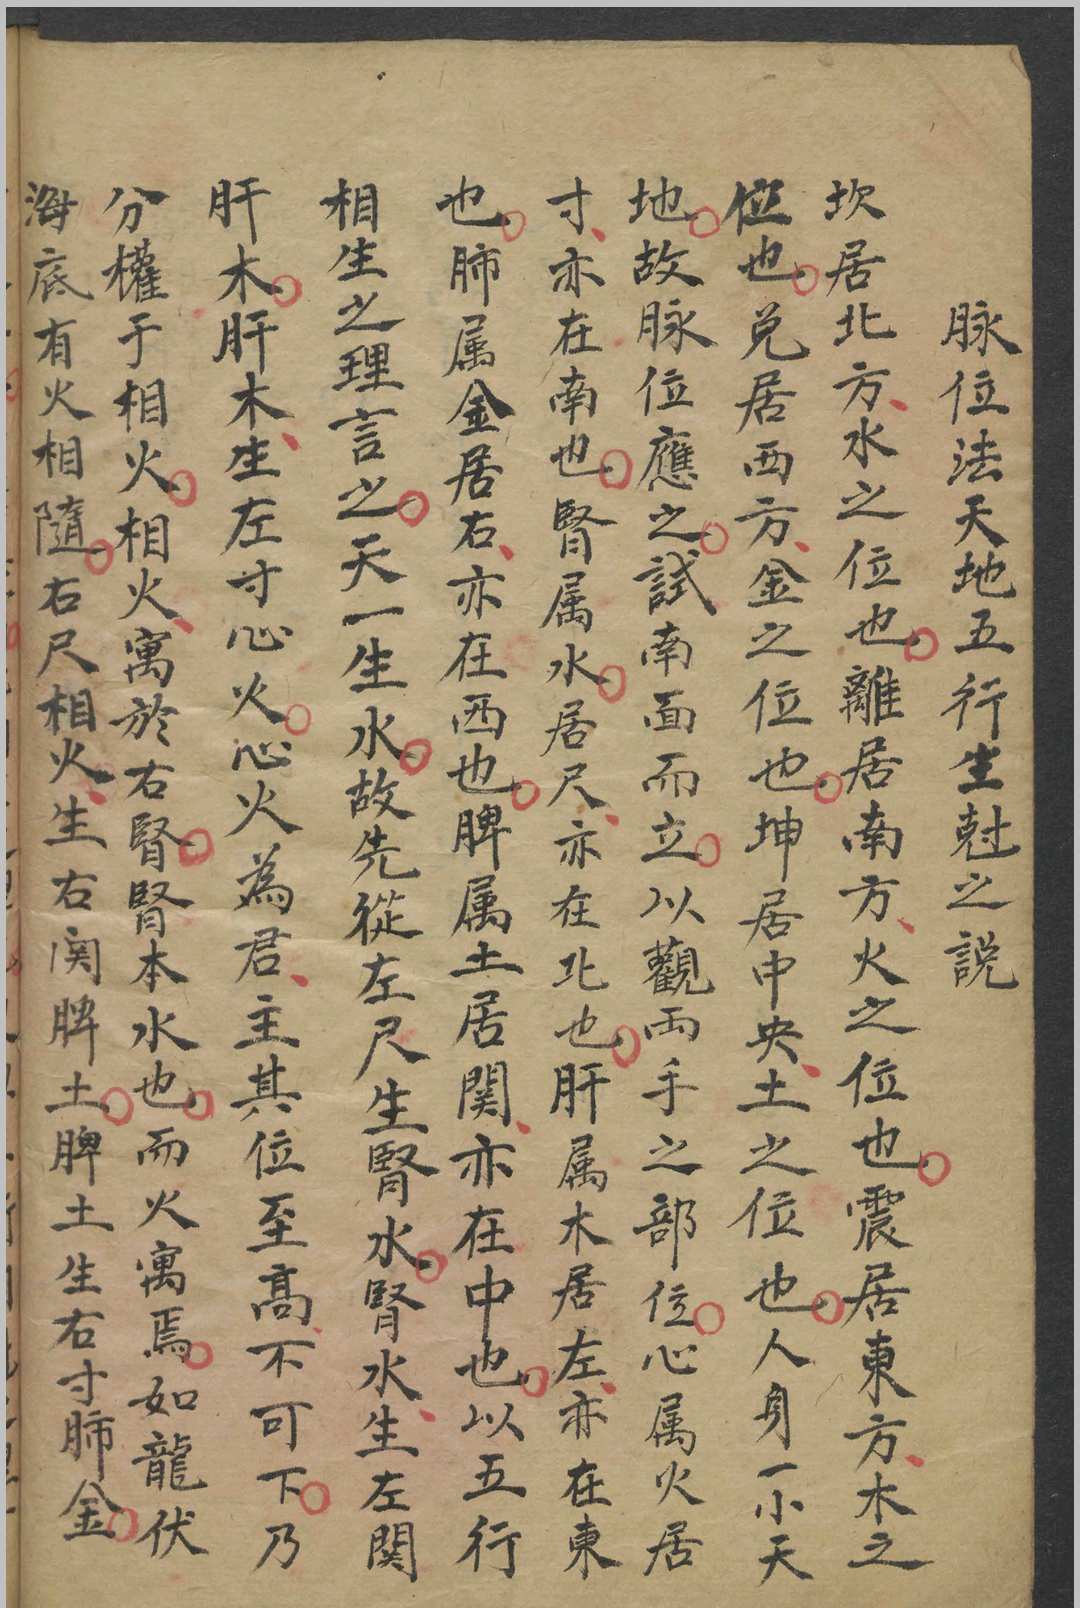 脉位法天地五行生尅之説
坎居北方水之位也離居南方火之位也震居東方木之
位也兑居西方金之位也坤居中央土之位也人身一小天
地故脉位應之試南面而立以觀両手之部位心属火居
寸亦在南也腎属水居尺亦在北也肝属木居左亦在東
也肺属金居右亦在西也脾属土居関亦在中也以五行
相生之理言之天一生水故先從左尺生腎水腎水生左関
肝木肝木生左寸心火心火為君主其位至高不可下乃
分權于相火相火寓於右腎腎本水也而火寓焉如龍伏
海底有火相隨右尺相火生右関脾土脾土生右寸肺金